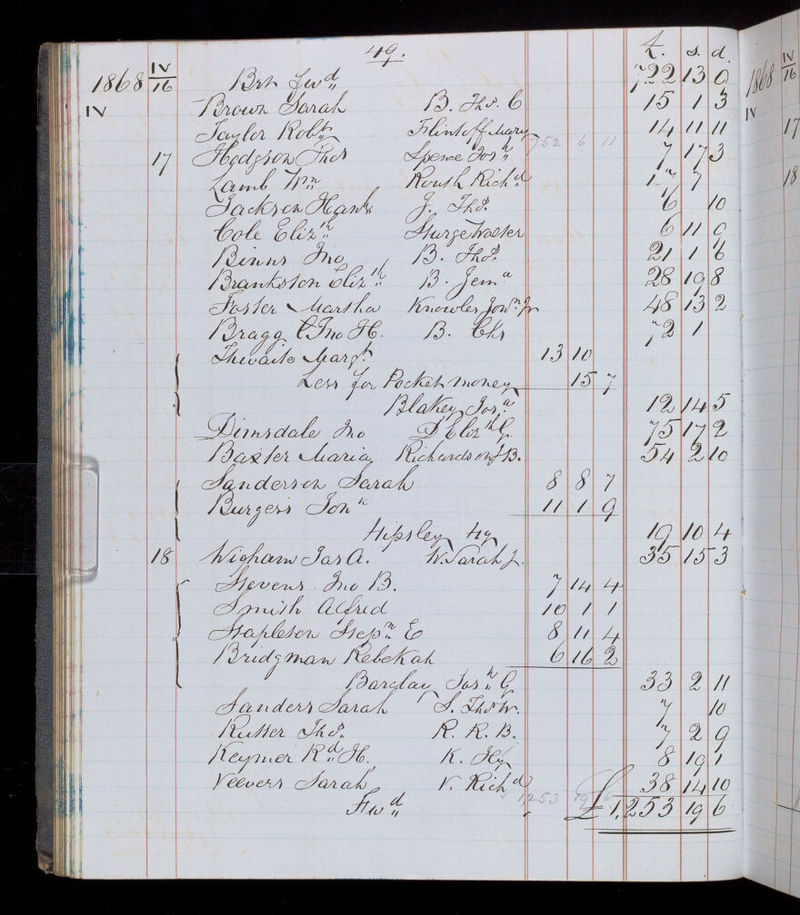 49.
£. s. d.
1868 IV/16 Brt Fwd 722 13 9
IV Brown Sarah B. Thos. C 15 1 3
Taylor Robt. Flintoff Mary 14 11 11
752 6 11
17 Hodgson Thos Spence Josh. 7 17 3
Lamb Wm Routh Richd. 1 7 7
Jackson Hanh. J. Thos. 6 10
Cole Elizth. Sturge Walter 6 11 9
Binns Jno B. Thos. 21 1 6
Brankston Elizth B. Jema 28 19 8
Foster Martha Knowles Jonn. Jr 48 13 2
Bragg C. Jno H. B. Chs 72 1
Thwaite Margt. 13 10
Less for Pocket money 15 7
Blakey Josa. 12 14 5
Dimsdale Jno D Elizth G. 75 17 2
Baxter Maria Richardson J B. 54 2 10
Sanderson Sarah 8 8 7
Burgess Jonn 11 1 9
Hipsley Hy 19 10 4
18 Wigham Jas A. W. Sarah J. 35 15 3
Stevens Jno B. 7 14 4
Smith Alfred 10 1 1
Stapleton Stepn. E 8 11 4
Bridgman Rebekah 6 16 2
Barclay Josh. G 33 2 11
Sanders Sarah S. Thos W. 7 10
Rutter Thos. R. R. B. 7 2 9
Keymer Rd. H. K. Hy 8 19 1
Veevers Sarah V. Richd 38 14 10
1,253 19 6
Fwd £ 1,253 19 6
1868 IV/16
IV
17
18